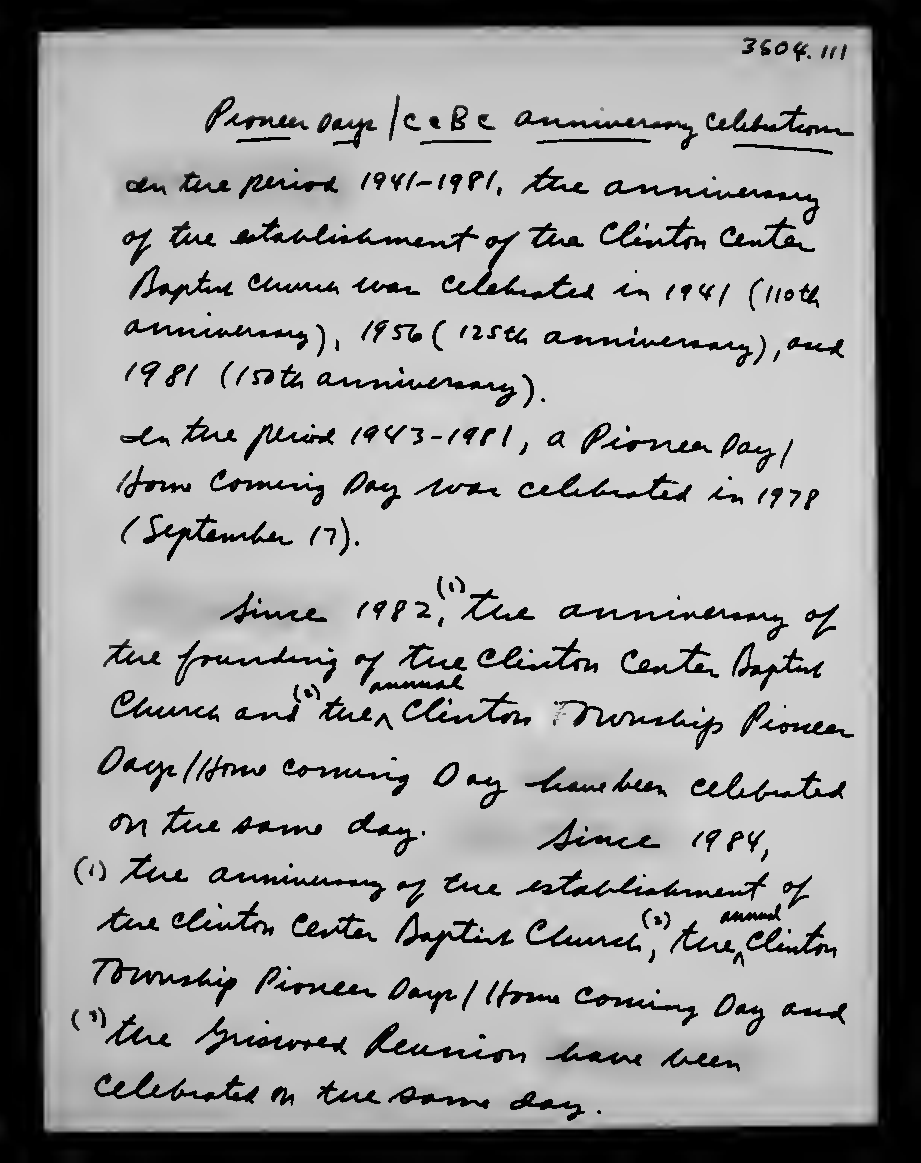 3604.111
Pioneer Days / CCBC anniversary celebrations
In the period 1941-1981, the anniversary
of the establishment of the Clinton Center
Baptist Church was celebrated in 1941 (110th
anniversary), 1956 (125th anniversary), and
1981 (150th anniversary).
In the period 1943-1981, a Pioneer Day/
Home Coming Day was celebrated in 1978
(September 17).
Since 1982, (1) the anniversary of
the founding of the Clinton Center Baptist
Church and (2) the annual Clinton Township Pioneer
Days/Home coming Day have been celebrated
on the same day. Since 1984,
(1) the anniversary of the establishment of
the Clinton Center Baptist Church, (2) the annual Clinton
Township Pioneer Days/Home Coming Day and
(3) the Griswold Reunion have been
celebrated on the same day.